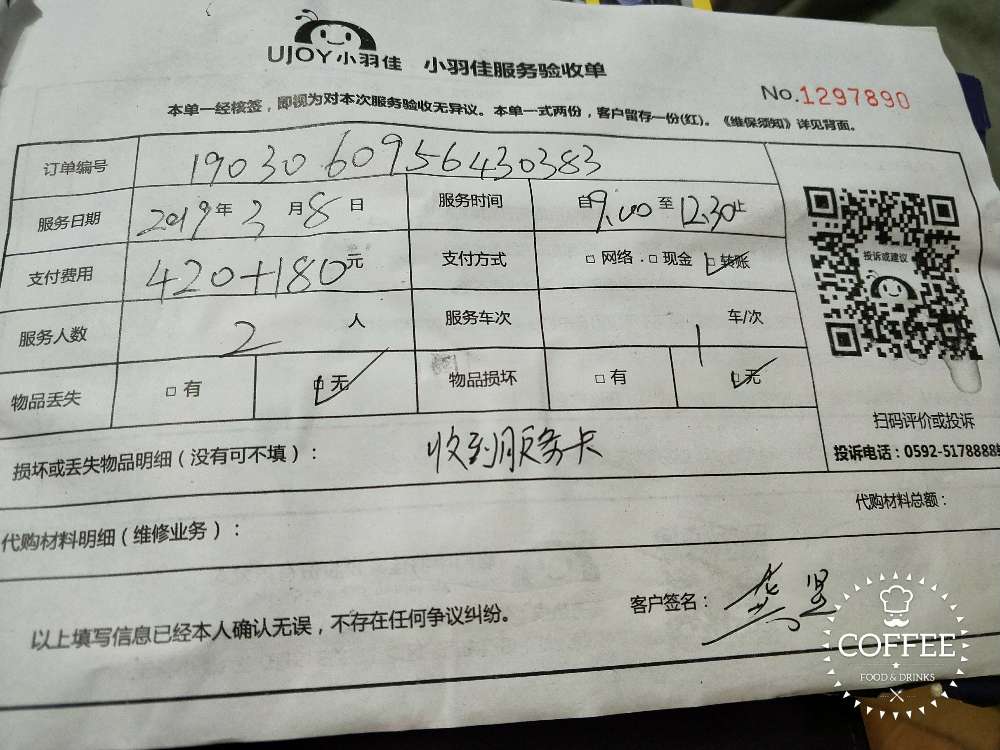 UJOY小羽佳 小羽佳服务验收单
No.1297890
本单一经核签，即视为对本次服务验收无异议。本单一式两份，客户留存一份(红)。《维保须知》详见背面。
订单编号 1903060956430383
服务日期 2019年3月8日 服务时间 自9.00至12.30止
支付费用 420+180元 支付方式 □网络.□现金□转账
服务人数 2人 服务车次 1车/次
物品丢失 □有 □无 物品损坏 □有 □无
投诉或建议
扫码评价或投诉
投诉电话：0592-5178888
损坏或丢失物品明细（没有可不填）： 收到服务卡
代购材料总额：
代购材料明细（维修业务）：
以上填写信息已经本人确认无误，不存在任何争议纠纷。
客户签名：
COFFEE
FOOD & DRINKS